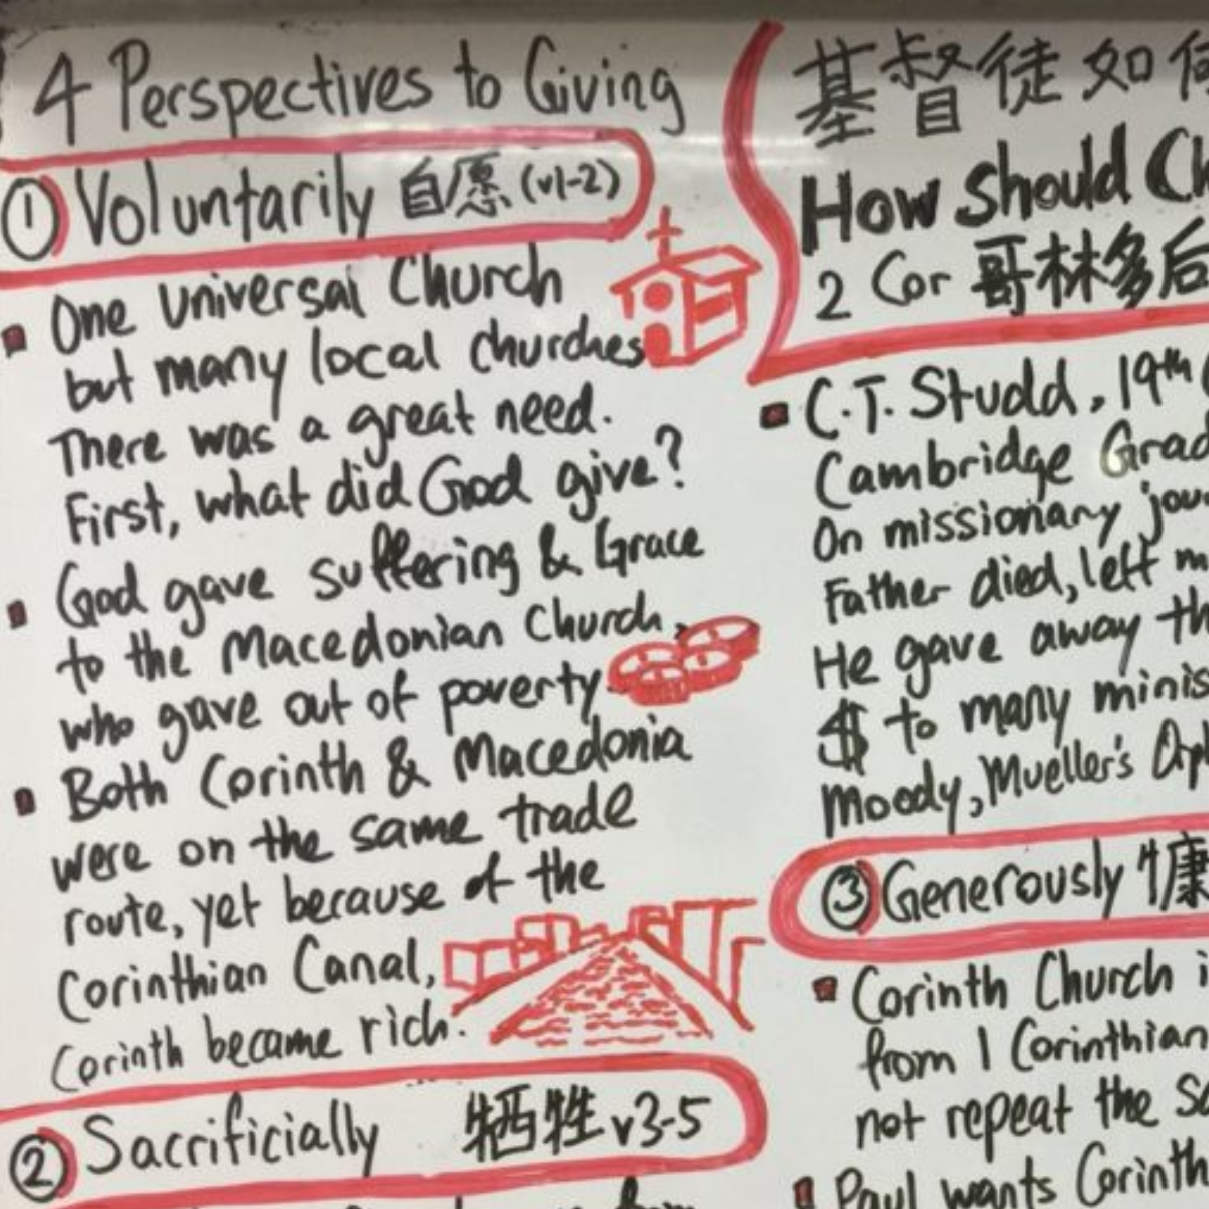 4 Perspectives to Giving
① Voluntarily 自愿 (v1-2)
▪ One Universal Church
but many local churches
There was a great need.
First, what did God give?
▪ God gave suffering & Grace
to the Macedonian Church,
who gave out of poverty.
▪ Both Corinth & Macedonia
were on the same trade
route, yet because of the
Corinthian Canal,
Corinth became rich.
② Sacrificially 牺牲 v3-5
基督徒如何
How Should Ch
2 Cor 哥林多后
▪ C.T. Studd, 19th C
Cambridge Grad
On missionary jou
Father died, left m
He gave away th
$ to many minis
Moody, Mueller's Orp
③ Generously 慷
▪ Corinth Church i
from 1 Corinthian
not repeat the sa
▪ Paul wants Corinth